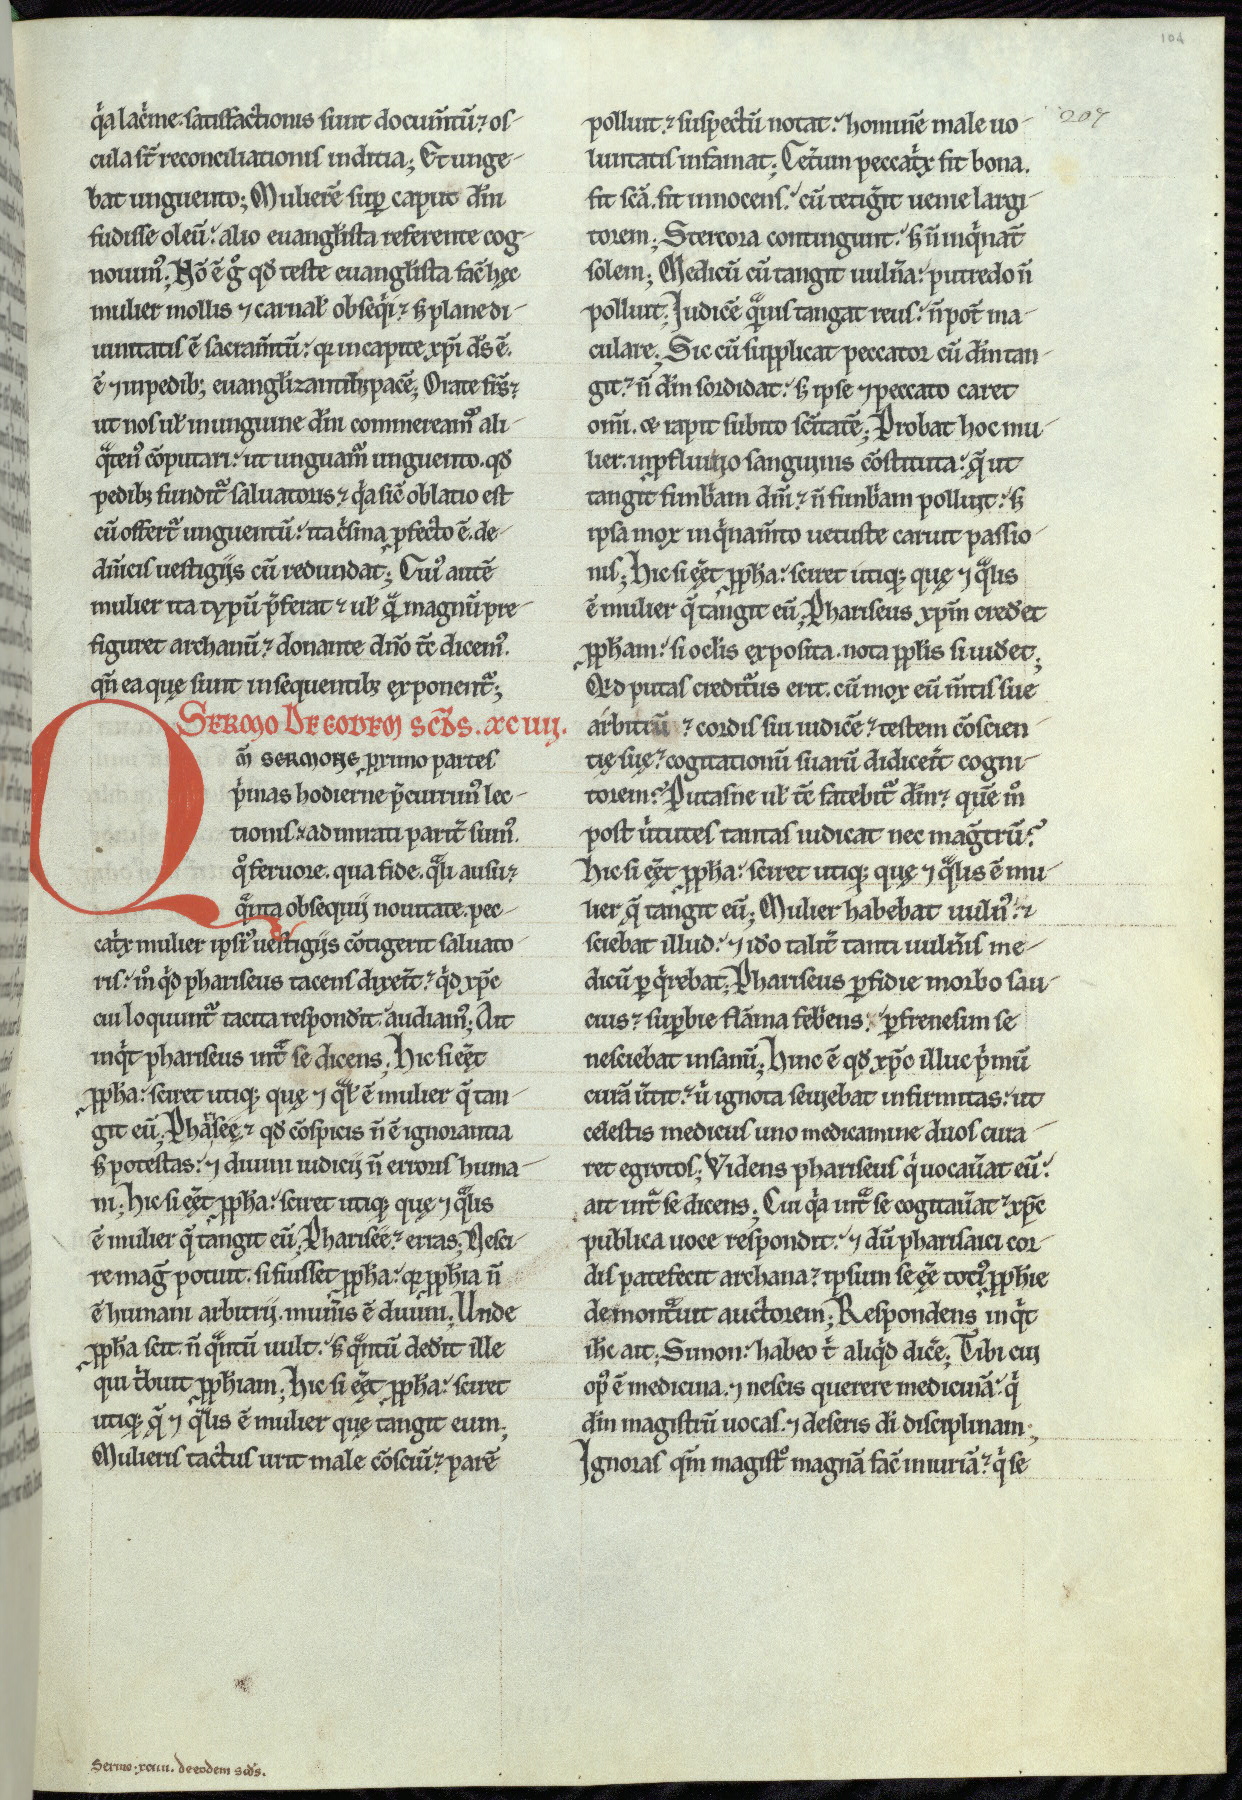 104
207
q̾a lac̾me. satisfactionis sunt docum̄tū? os-
cula st̄ reconciliationis inditia; Et unge-
bat unguento; Mulierē suꝑ caput dn̄i
fudisse oleū: alio euanglista referente cog-
nouim᷒; Nō ē g° qđ teste euanglista fac̄ hęc
mulier mollis ⁊ carnał obseq̾i? sꝫ plane di-
uinitatis ē sacram̄tū: qꝛ in capite xp̄i dſ ē.
ē ⁊ in pedibꝫ euanglizantibꝫ pacē; Orate fr̄s?
ut nos uł in unguine dn̄i commeream᷒ ali-
qͣten᷒ cōputari: ut unguam᷒ unguento. qđ
pedibꝫ fundit᷑ saluatoris? q̾a sic̄ oblatio est
cū offert᷑ unguentū: ita c̾sma ꝑfecto ē. de
dn̄icis uestigijs cū redundat; Cui᷒ autē
mulier ita typū p̄ferat? uł qͣ magnū pre-
figuret archanū? donante dn̄o tc̄ dicem᷒.
qn̄ ea que sunt in sequentibꝫ exponent᷑;
Sermo de eodem scds. xcuij.
Qm̄ sermone primo partes
p̾mas hodierne p̄currim᷒ lec-
tionis? admirati parit̄ sum᷒.
q° feruore. qua fide. qͣli ausu?
qͣnta obsequij nouitate. pec-
cat̾x mulier ipsi᷒ uestigijs cōtigerit saluato-
ris: m° q̾d phariseus tacens dixer̄t? q̾d xp̄c
cui loquunt᷑ tacita respondit. audiam᷒; Ait
inq̾t phariseus int̄ se dicens; Hic si eēt
ꝓpha: sciret utiqꝫ que ⁊ qͣł ē mulier q̄ tan-
git eū; Phariseę? qđ cōspicis n̄ ē ignorantia
sꝫ potestas: ⁊ diuini iudicij n̄ erroris huma-
ni; Hic si eēt ꝓpha: sciret utiqꝫ que ⁊ qͣlis
ē mulier q̄ tangit eū; Pharisee? erras; Nesci-
re mag̾ potuit. si fuisset ꝓpha: qꝛ ꝓphia n̄
ē humani arbitrij. mun̄is ē diuini; Unde
ꝓpha scit. n̄ qͣntū uult: sꝫ qͣntū dedit ille
qui t̾buit ꝓphiam; Hic si eēt ꝓpha: sciret
utiqꝫ q̄ ⁊ qͣlis ē mulier que tangit eum;
Mulieris tactus urit male cōsciū? parē
polluit? suspectū notat: hominē male uo-
luntatis infamat; Cet̄um peccat̾x fit bona.
fit scā. fit innocens: cū tetig̾it uenie largi-
torem; Stercora contingunt: sꝫ n̄ inq̾nat̄
solem; Medicū cū tangit uuln̄a: putredo n̄
polluit; Judicē qͣmuis tangat reus: n̄ pot̄ ma-
culare; Sic cū supplicat peccator cū dn̄m tan-
git? n̄ dn̄m sordidat: sꝫ ipse ⁊ peccato caret
om̄i. & rapit subito sc̄itatē; Probat hoc mu-
lier. in ꝓfluuio sanguinis cōstituta: q̄ ut
tangit fimb̾am dn̄i? n̄ fimb̾am polluit: sꝫ
ipsa mox inq̾nam̄to uetuste caruit passio-
nis; Hic si eēt ꝓpha: sciret utiqꝫ que ⁊ qͣlis
ē mulier q̄ tangit eū; Phariseus xp̄m credet
ꝓpham: si oclis exposita. nota pplis si uidet;
Qđ putas credit᷑us erit. cū mox eū m̄tis sue
arbitrū ? cordis sui iudicē? testem cōscien-
tię suę? cogitationū suarū didicer̄t cogni-
torem? Putasne uł tc̄ fatebit᷑ dn̄m? quē m°
post u̾tutes tantas iudicat nec mag̾trū?
Hic si eēt ꝓpha: sciret utiqꝫ que ⁊ qͣlis ē mu-
lier q̄ tangit eū; Mulier habebat uuln᷒: ?
sciebat illud: ⁊ ido talit̄ tanti uuln̄is me-
dicū ꝑq̾rebat; Phariseus ꝑfidie morbo sau-
cius? suꝑbie flāma feb̾ens: ꝑ frenesim se
nesciebat insanū; Hinc ē qđ xp̄c illuc p̾mū
curā ūtit? u̾ ignota seuiebat infirmitas: ut
celestis medicus uno medicamine duos cura-
ret egrotos; Videns phariseus q̾ uocau̾at eū:
ait intͣ se dicens; Cui q̾a intͣ se cogitau̾at? xp̄c
publica uoce respondit: ⁊ dū pharisaici cor-
dis patefecit archana? ipsum se eē toti᷒ ꝓphie
demonst̾uit auctorem; Respondens inq̾t
ihc̄ ait; Simon: habeo t̾ aliq̾d dic̄e; Tibi cui
op᷒ ē medicina. ⁊ nescis querere medicinā: q̾
dn̄m magistrū uocas. ⁊ deseris di disciplinam;
Ignoras qm̄ magist° magnā fac̄ iniuriā? q̾ se
Sermo. xcuii. de eodem scds.